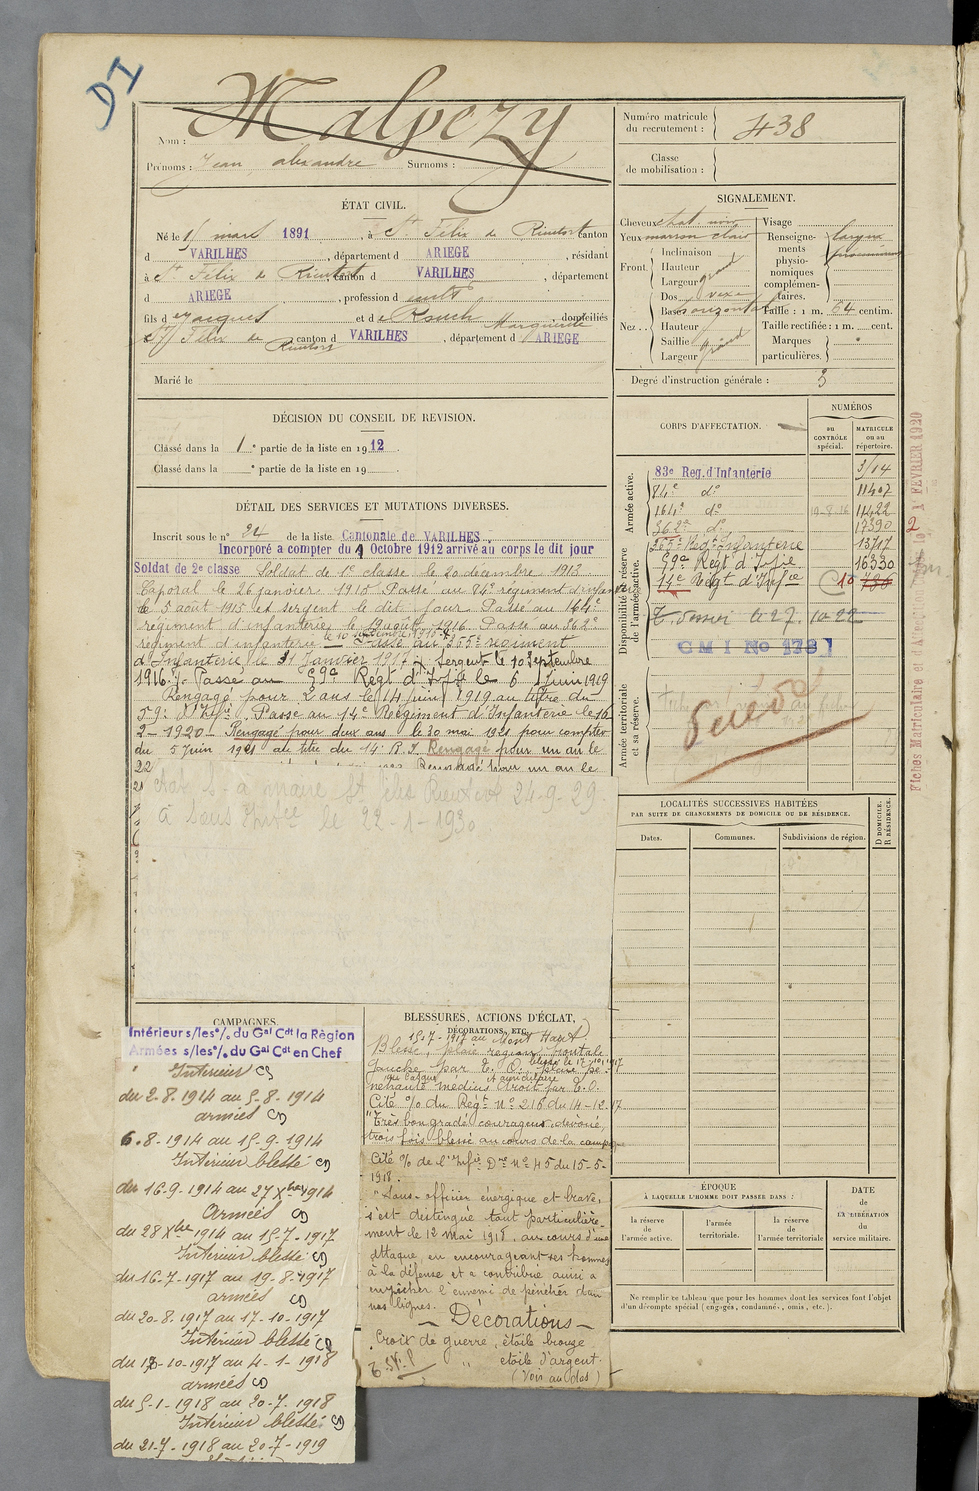 DI
Nom : Malpezy
Prénoms : Jean alexandre Surnoms :
Numéro matricule du recrutement : 438
Classe de mobilisation :
ÉTAT CIVIL.
Né le 15 mars 1891, à St Félix de Rieutort canton
d VARILHES, département d ARIEGE, résidant
à St Félix de Rieutort, canton d VARILHES, département
d ARIEGE, profession d
fils d e Jacques et d e Rouch Marguerite, domiciliés
à St Félix de Rieutort canton d VARILHES, département d ARIEGE
Marié le
SIGNALEMENT.
Cheveux chat. noir
Yeux marron clair
Front. Inclinaison
Hauteur grand
Largeur
Nez. Dos vexe
Base horizontal
Hauteur
Saillie grand
Largeur
Visage large
Renseignements physionomiques complémentaires.
Taille : 1 m. 64 centim.
Taille rectifiée : 1 m. cent.
Marques particulières.
Degré d'instruction générale : 3
DÉCISION DU CONSEIL DE REVISION.
Classé dans la 1e partie de la liste en 1912.
Classé dans la e partie de la liste en 19
DÉTAIL DES SERVICES ET MUTATIONS DIVERSES.
Inscrit sous le n° 24 de la liste Cantonale de VARILHES.
Incorporé a compter du 9 Octobre 1912 arrivé au corps le dit jour
Soldat de 2e classe Soldat de 1e classe le 20 décembre 1913
Caporal le 26 janvier 1915 Passé au 84e régiment d'infanterie
le 5 août 1915 et sergent le dit jour Passé au 164e
régiment d'infanterie le 19 août 1916. Passé au 362e
régiment d'infanterie le 10 Passé au 355e régiment
d'Infanterie le 31 Janvier 1917 Sergent le 10 Septembre
1916. Passé au 59e Régt d'Infie le 6 Juin 1919
Rengagé pour 2 ans le 14 juin 1919 au titre du
59e d'Infie. Passé au 14e Régiment d'Infanterie le 16
2-1920 Rengagé pour deux ans le 30 mai 1921 pour compter
du 5 juin 1921 au titre du 14e R.I. Rengagé pour un an le
22 Rengagé pour un an le
à maire St Félix Rieutort 24-9-29.
le 22-1-1930.
CORPS D'AFFECTATION.
NUMÉROS
au CONTRÔLE spécial.
MATRICULE ou au répertoire.
Armée active.
83e Reg. d'Infanterie 3/14
84e d° 11407
164e d° 10-8-16 11422
362e d° 17390
355e Régt Infanterie 13717
Disponibilité et réserve de l'armée active.
59e Régt d'Infie 16330
14e Régt d'Infie C 10 786
27. 10-22
C M I No 178
Armée territoriale et sa réserve.
Fiches Matriculaire et d'Affection 1r FEVRIER 1920
LOCALITÉS SUCCESSIVES HABITÉES
PAR SUITE DE CHANGEMENTS DE DOMICILE OU DE RÉSIDENCE.
Dates. Communes. Subdivisions de région. D DOMICILE. R RÉSIDENCE.
ÉPOQUE
À LAQUELLE L'HOMME DOIT PASSER DANS :
la réserve de l'armée active.
l'armée territoriale.
la réserve de l'armée territoriale
DATE de LA LIBÉRATION du service militaire.
Ne remplir ce tableau que pour les hommes dont les services font l'objet
d'un décompte spécial (engagés, condamnés, omis, etc.).
CAMPAGNES.
Intérieur s/les °/. du Gal Cdt la Règion
Armées s/les °/. du Gal Cdt en Chef
Intérieur CS
du 2-8-1914 au 5-8-1914
armées CD
6-8-1914 au 15-9-1914
Intérieur blessé CD
du 16-9-1914 au 27 Xbre 1914
Armées CD
du 28 Xbre 1914 au 15-7-1917
Intérieur blessé CD
du 16-7-1917 au 19-8-1917
armées CD
du 20-8-1917 au 17-10-1917
Intérieur blessé CD
du 18-10-1917 au 4-1-1918
armées CD
du 5-1-1918 au 20-7-1918
Intérieur blessé CD
du 21-7-1918 au 20-7-1919
BLESSURES, ACTIONS D'ÉCLAT,
DÉCORATIONS, ETC.
15-7-1917 au Mont Haut
Blessé, plaie région frontale
gauche par E. O. blessé le 17-10-1917 plaie pé-
nétrante médius droit par E.O.
Cité °/. du Régt N° 216 du 14-12-17
"Très bon gradé courageux, dévoué,
trois fois blessé au cours de la campagne
Cité °/. de l'Infie Dre N° 45 du 15-5-
1918.
"Sous-officier énergique et brave,
s'est distingué tout particulière-
ment le 12 mai 1918, au cours d'une
attaque, en encourageant ses hommes
à la défense et a contribué ainsi a
empêcher l'ennemi de pénétrer dans
nos lignes.
Décorations
Croix de guerre, étoile bronze
" étoile d'argent.
(Voir au dos)